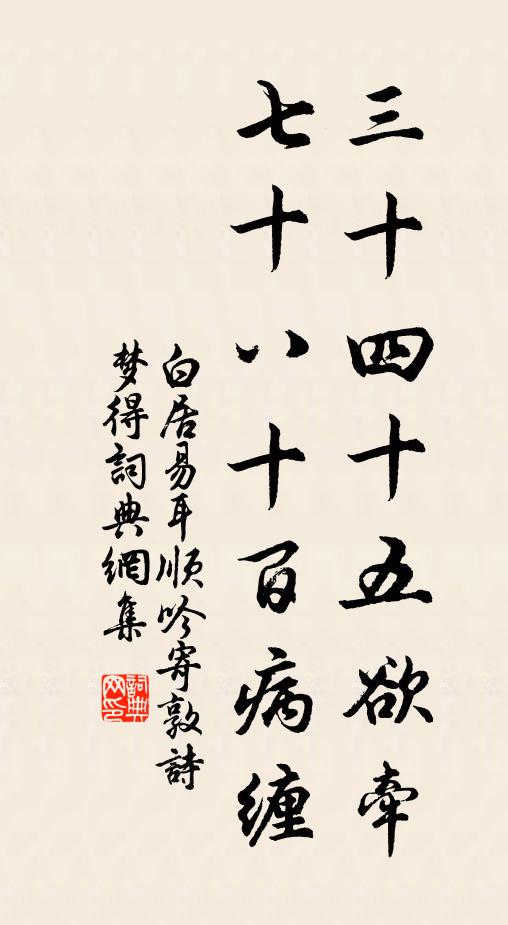 三十四十五欲牽
七十八十百病纏
白居易耳順吟寄敦詩
梦得詞典網集
詞典
网印